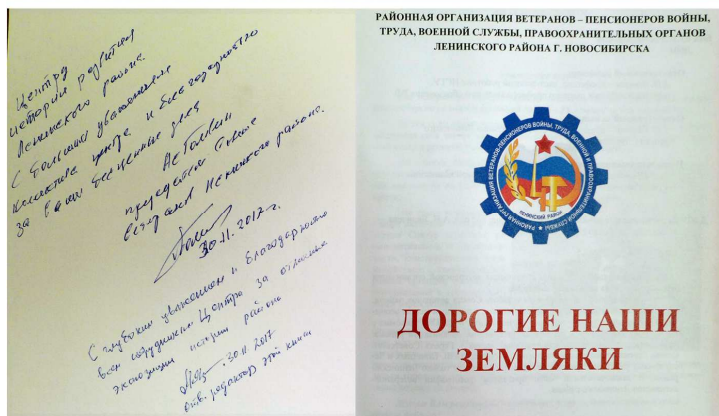 Центру
истории развития
Ленинского района.
С большим уважением
коллективу центра и благодарностью
за ваши бесценные
председатель Совета
ветеранов Ленинского района.
30.11.2017г.
С глубоким уважением и благодарностью
всем сотрудникам Центра за отличные
экспозиции истории района
30.11.2017
отв. редактор этой книги
РАЙОННАЯ ОРГАНИЗАЦИЯ ВЕТЕРАНОВ – ПЕНСИОНЕРОВ ВОЙНЫ,
ТРУДА, ВОЕННОЙ СЛУЖБЫ, ПРАВООХРАНИТЕЛЬНЫХ ОРГАНОВ
ЛЕНИНСКОГО РАЙОНА Г. НОВОСИБИРСКА
РАЙОННАЯ ОРГАНИЗАЦИЯ ВЕТЕРАНОВ-ПЕНСИОНЕРОВ ВОЙНЫ, ТРУДА, ВОЕННОЙ И ПРАВООХРАНИТЕЛЬНОЙ СЛУЖБЫ
ЛЕНИНСКИЙ РАЙОН
ДОРОГИЕ НАШИ
ЗЕМЛЯКИ